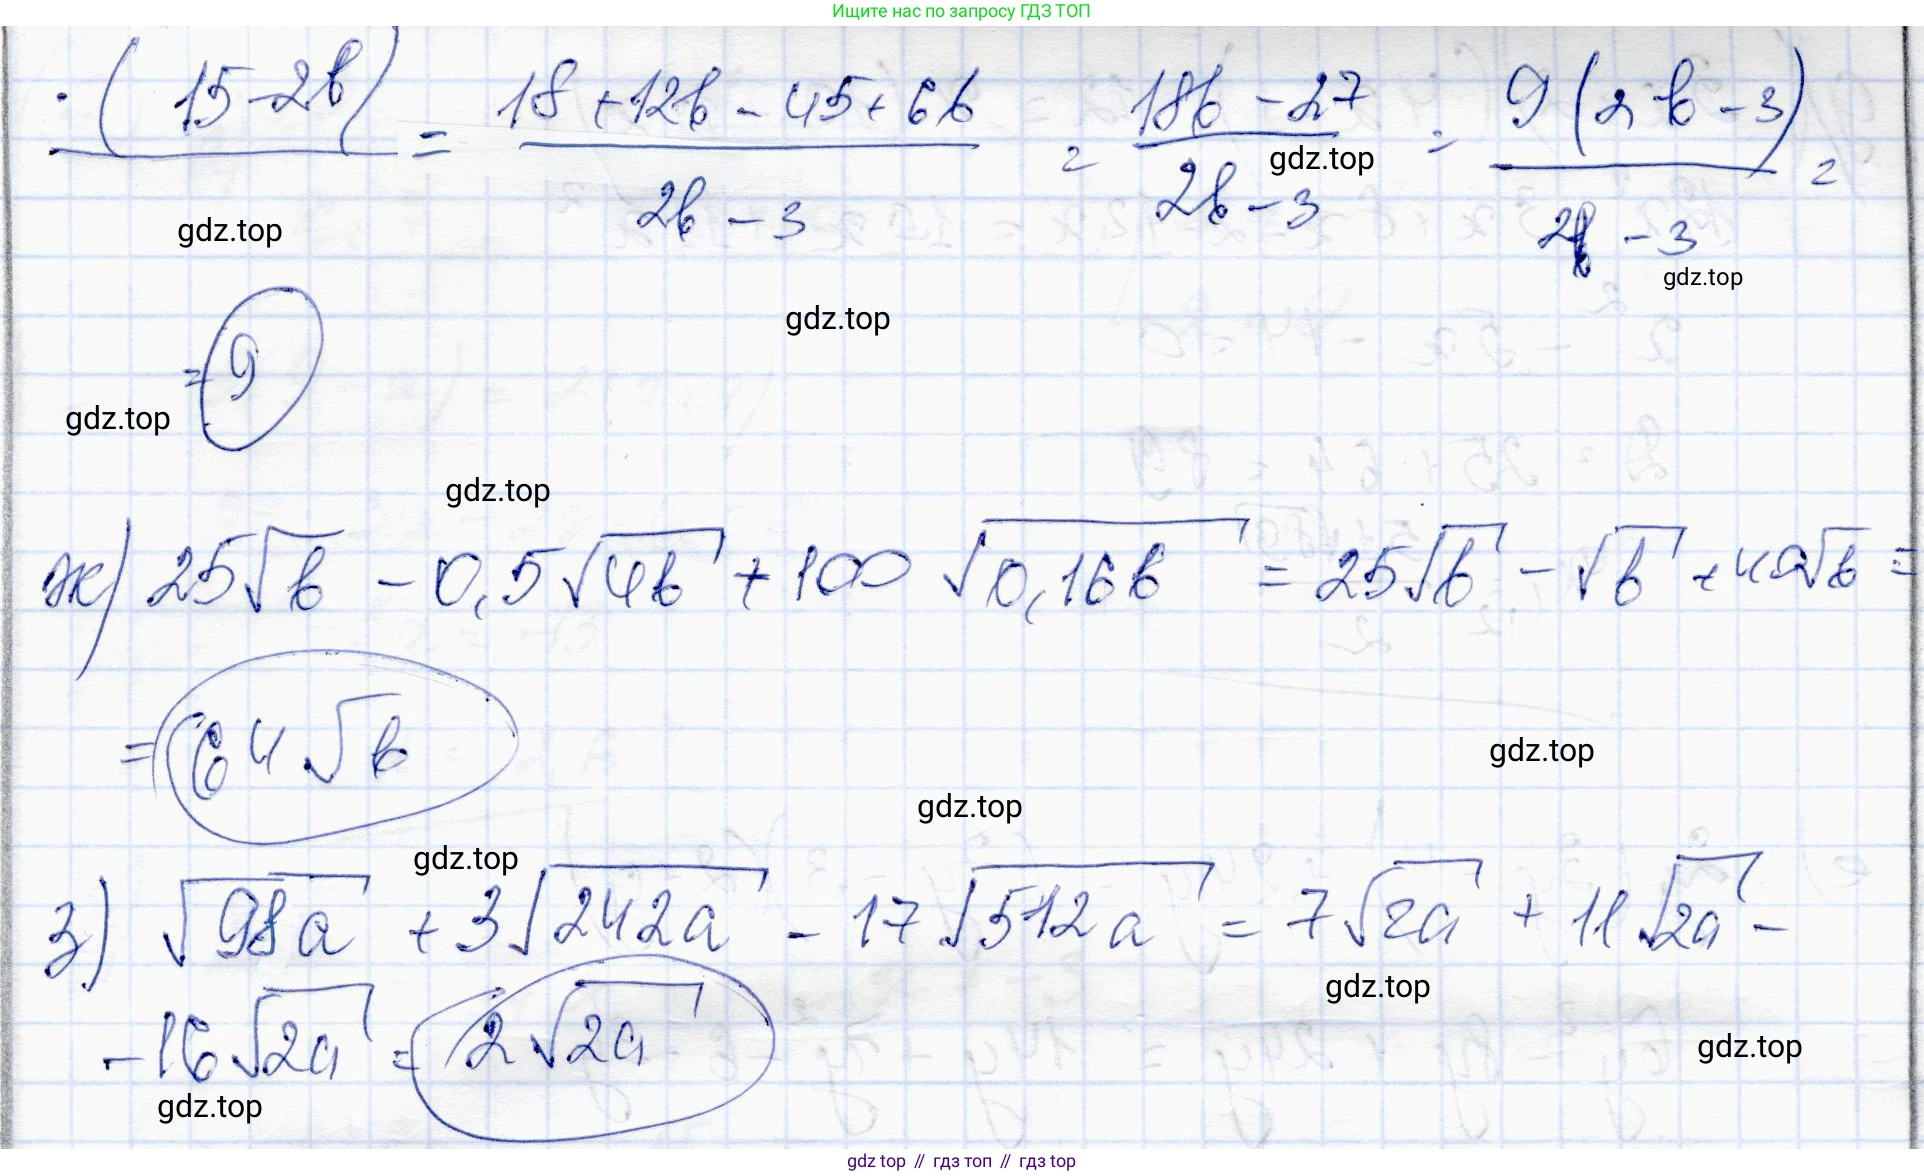 Ищите нас по запросу ГДЗ ТОП
· (15-2b) = 18+12b-45+6b / 2b-3 = 18b-27 / 2b-3 = 9(2b-3) / 2b-3 =
gdz.top
gdz.top
gdz.top
gdz.top
= 9
gdz.top
gdz.top
ж) 25√b - 0,5√4b + 100√0,16b = 25√b - √b + 40√b =
= 64√b
gdz.top
gdz.top
gdz.top
з) √98a + 3√242a - 17√512a = 7√2a + 11√2a -
gdz.top
- 16√2a = 2√2a
gdz.top
gdz.top
gdz.top // гдз топ // гдз top